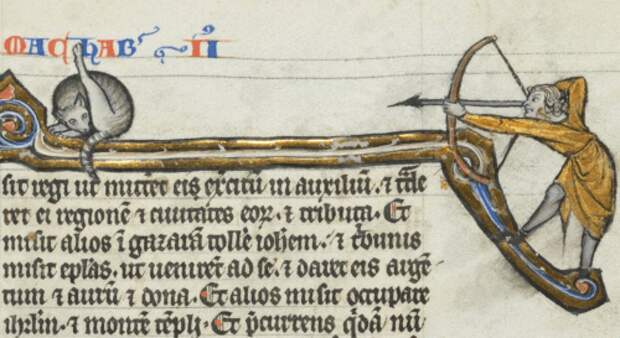 MACHAB᾽ II
sit regi ut mitt̄et eis exc̄itū in auxiliū. ⁊ t̄de
ret ei regionē ⁊ ciuitates eoꝝ. ⁊ tributa. Et
misit alios ī gazarā tolle᷑ ioh̄em. ⁊ t᷑bunis
misit ep̄las. ut uenirēt ad se. ⁊ daret eis argē
tum ⁊ aurū ⁊ dona. Et alios misit occupare
ihrl̄m. ⁊ montē tēpli. Et p̄currens q᷑dā nū